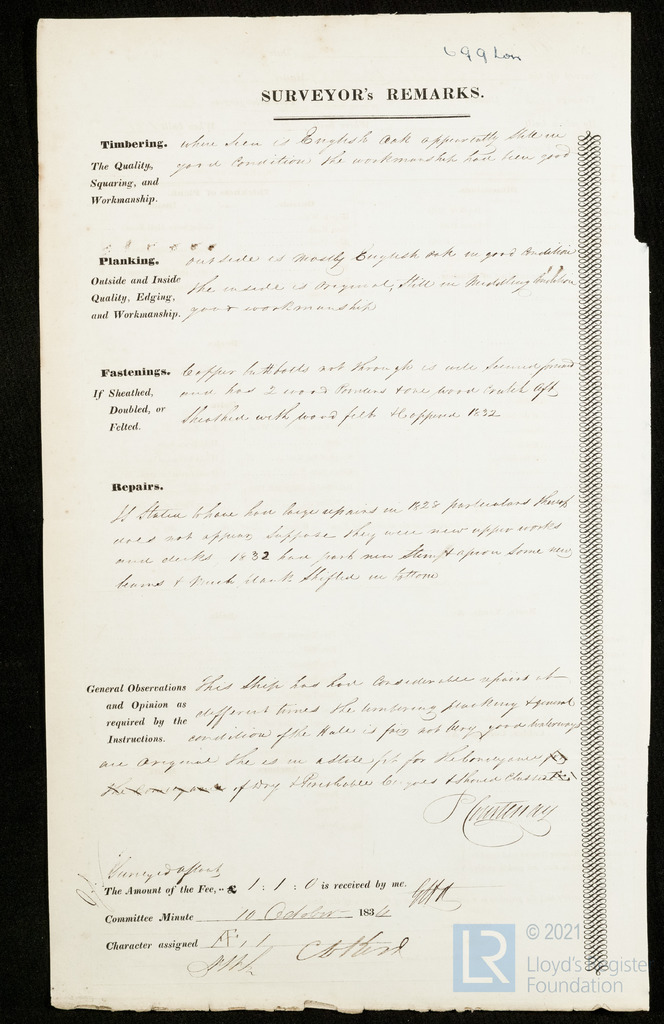 699 Lon
SURVEYOR's REMARKS.
Timbering. where seen is English Oak apparently still in
The Quality, good Condition the workmanship had been good
Squaring, and
Workmanship.
Planking, outside is mostly English oak in good Condition
Outside and Inside the inside is original, Still in Middling Condition
Quality, Edging, good workmanship
and Workmanship.
Fastenings. Copper butt bolts not through is well secured forward
If Sheathed, and has 2 wood Pointers & one wood Crutch Aft
Doubled, or Sheathed with wood felt & Coppered 1832
Felted.
Repairs.
Is Stated to have had large repairs in 1828 particulars thereof
does not appear Suppose they were new upper works
and decks, 1832 had part new Stem & apron Some new
beams & Much plank Shifted in bottom
General Observations This Ship has had Considerable repairs at
and Opinion as different times the timbering planking & general
required by the condition of the Hull is fair not Very good Waterways
Instructions.
are original She is in a state fit for the Conveyance
the conveyance of dry & Perishable Cargoes & should Class
P Courtenay
Surveyed afloat
The Amount of the Fee, .. £ 1 : 1 : 0 is received by me.
Committee Minute 10 October 1834
Character assigned Æ 1
© 2021
LR Lloyd's Register
Foundation